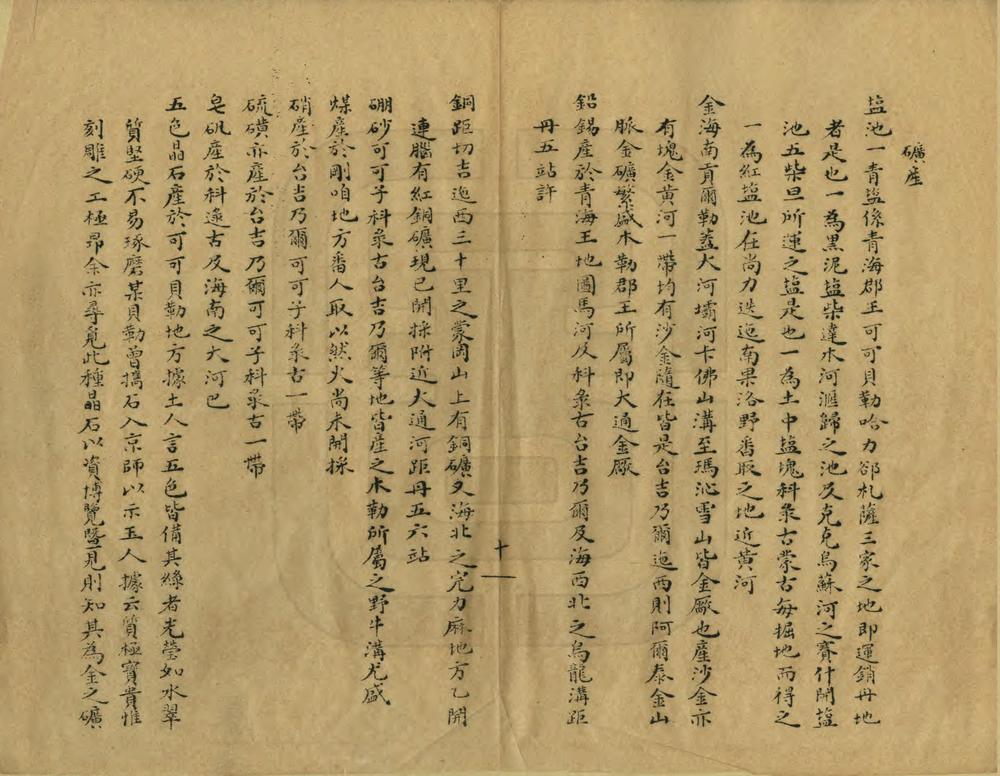 礦產
塩池一青塩係青海郡王可可貝勒哈力郤札薩三家之地即運銷丹地
者是也一為黑泥塩柴達木河滙歸之池及克克烏蘇河之賽什開塩
池五柴旦所運之塩是也一為土中塩塊科彔古蒙古每掘地而得之
一為紅塩池在尚力迭迤南果洛野番取之地近黃河
金海南貢爾勒蓋大河壩河卡佛山溝至瑪沁雪山皆金厰也產沙金亦
有塊金黃河一帶均有沙金隨在皆是台吉乃爾迤西則阿爾泰金山
脈金礦繁盛木勒郡王所屬即大通金厰
鉛錫產於青海王地圖馬河及科彔古台吉乃爾及海西北之烏龍溝距
丹五站許
銅距切吉迤西三十里之蒙岡山上有銅礦又海北之完力麻地方乙開
連腦有紅銅礦現已開採附近大通河距丹五六站
硼砂可可子科彔古台吉乃爾等地皆產之木勒所屬之野牛溝尤盛
煤產於剛咱地方番人取以然火尚未開採
硝產於台吉乃爾可可子科彔古一帶
硫磺亦產於台吉乃爾可可子科彔古一帶
皂矾產於科逯古及海南之大河巴
五色晶石產於可可貝勒地方據土人言五色皆備其綠者光瑩如水翠
質堅硬不易琢磨某貝勒曾攜石入京師以示玉人據云質極寶貴惟
刻雕之工極昂余亦尋覓此種晶石以資博覽暨一見則知其為金之礦
十